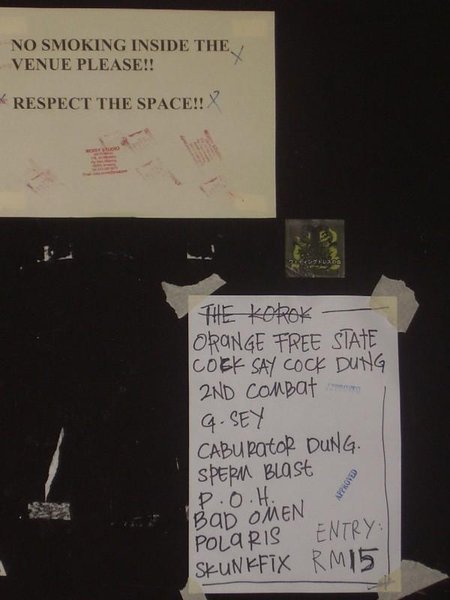 NO SMOKING INSIDE THE
VENUE PLEASE!!
RESPECT THE SPACE!!
THE KOROK
ORANGE FREE STATE
COEK SAY COCK DUNG
2ND COMBAT
APPROVED
G-SEY
CABURATOR DUNG.
SPERM BLAST
APPROVED
P.O.H.
BAD OMEN
POLARIS
SKUNKFIX
ENTRY:
RM15